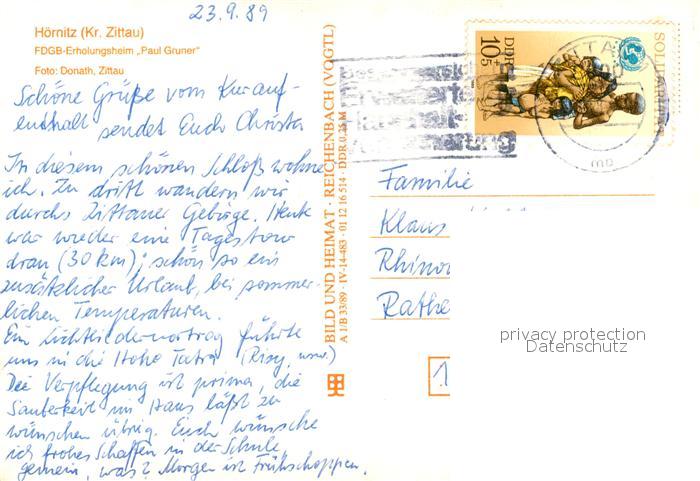 23.9.89
Hörnitz (Kr. Zittau)
FDGB-Erholungsheim „Paul Gruner"
Foto: Donath, Zittau
Schöne Grüße vom Kurauf-
enthalt sendet Euch Christa
In diesem schönen Schloß wohne
ich. Zu dritt wandern wir
durchs Zittauer Gebirge. Heute
war wieder eine Tagestour
dran (30 km); schön so ein
zusätzlicher Urlaub, bei sommer-
lichen Temperaturen.
Ein Lichtbildervortrag führte
uns in die Hohe Tatra (Rysy, usw.)
Die Verpflegung ist prima, die
Sauberkeit im Haus läßt zu
wünschen übrig. Euch wünsche
ich frohes Schaffen in der Schule
gemein, was? Morgen ist Frühschoppen.
BILD UND HEIMAT · REICHENBACH (VOGTL)
A 1/B 33/89 · IV-14-483 · 01 12 16 514 · DDR 0,25 M
DDR
10+5
SOLIDARITÄT
Familie
Klaus
Rhino
Rathe
1
privacy protection
Datenschutz